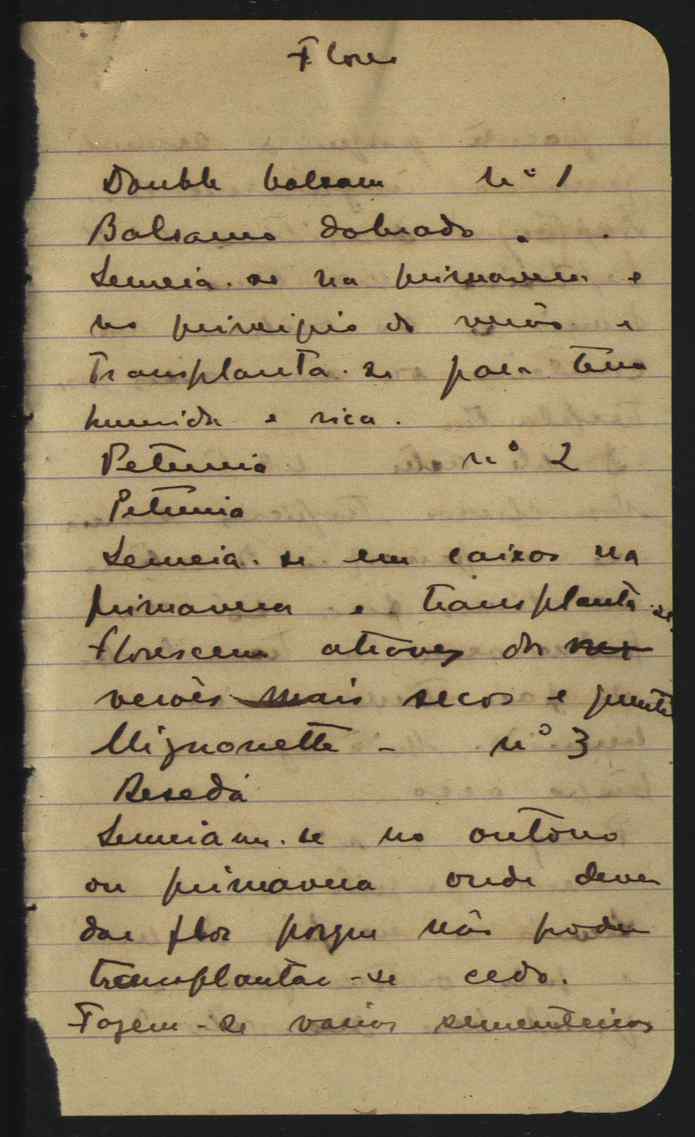 Flores
Double balsam nº 1
Balsamo dobrado
Semeia-se na primavera e
no principio do verão e
transplanta-se para terra
humida e rica.
Petunia nº 2
Petunia
Semeia-se em caixas na
primavera e transplanta-se
Florescem atravez dos ver
verões mais secos e quentes
Mignonette - nº 3
Resedá
Semeiam-se no outono
ou primavera onde devem
dar flor porque não podem
transplantar-se cedo.
Fazem-se varias sementeiras